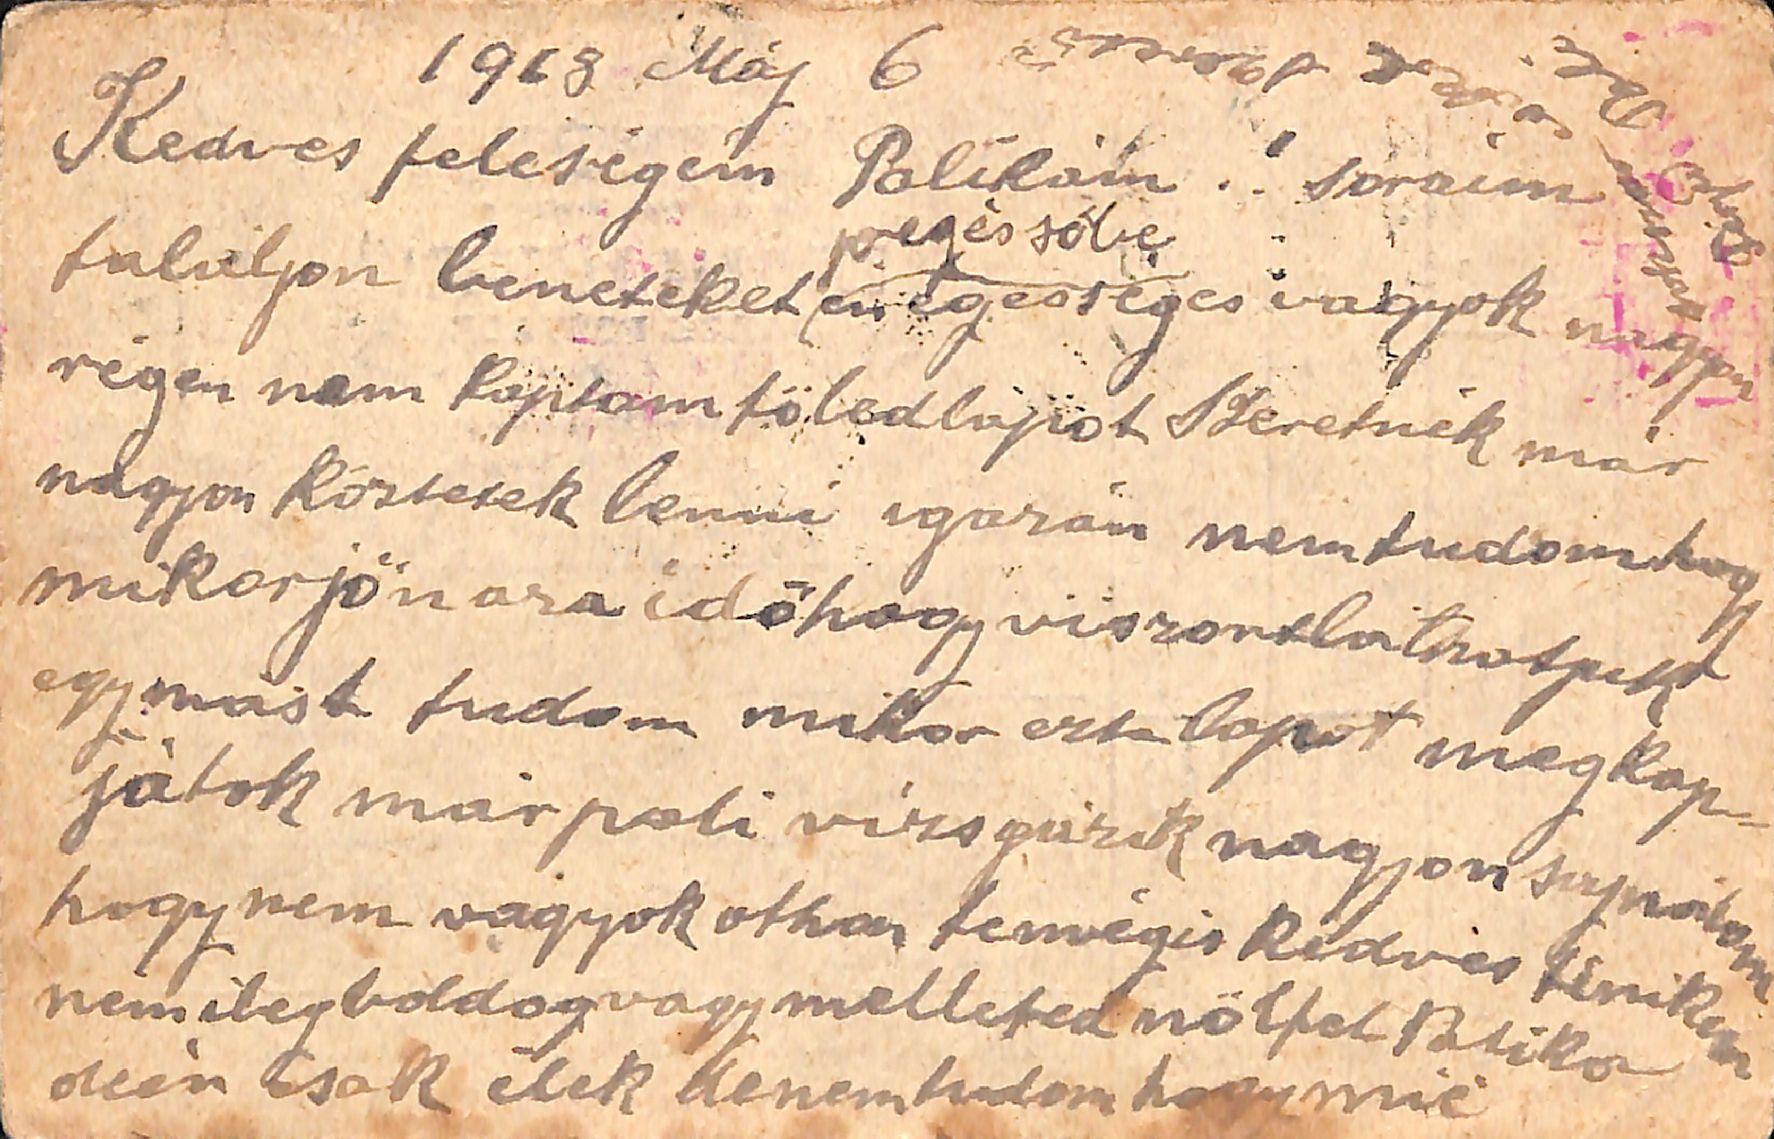 1918 Máj 6
Kedves feleségem Palikám..! soraim
tulaljon beneteket jo egéssőbe én egésséges vagyok nagyon
régen nem kaptam töled lapot Szeretnék már
nagyon köztetek lenni igazán nem tudom hogy
mikor jön aza idő hogy viszontláthatjuk
egymást tudom mikor ezt lapot megkap-
játok már pali virsgázik nagyon sajnálom
hogy nem vagyok othan temégis kedves
nemileg boldog vagy melleted nöl fel Palika
deén csak élek denem tudom hogy mié